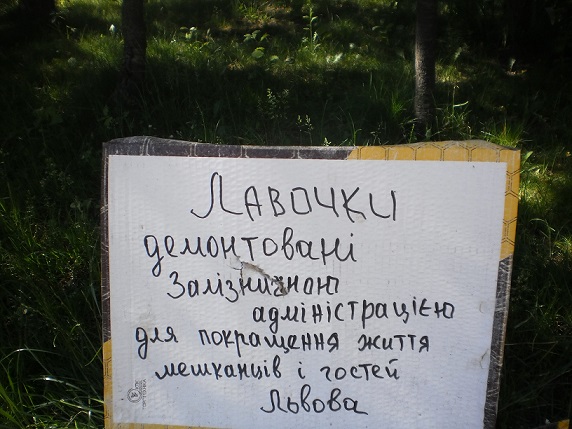 Лавочки
демонтовані
Залізничною
адміністрацією
для покращення життя
мешканців і гостей
Львова